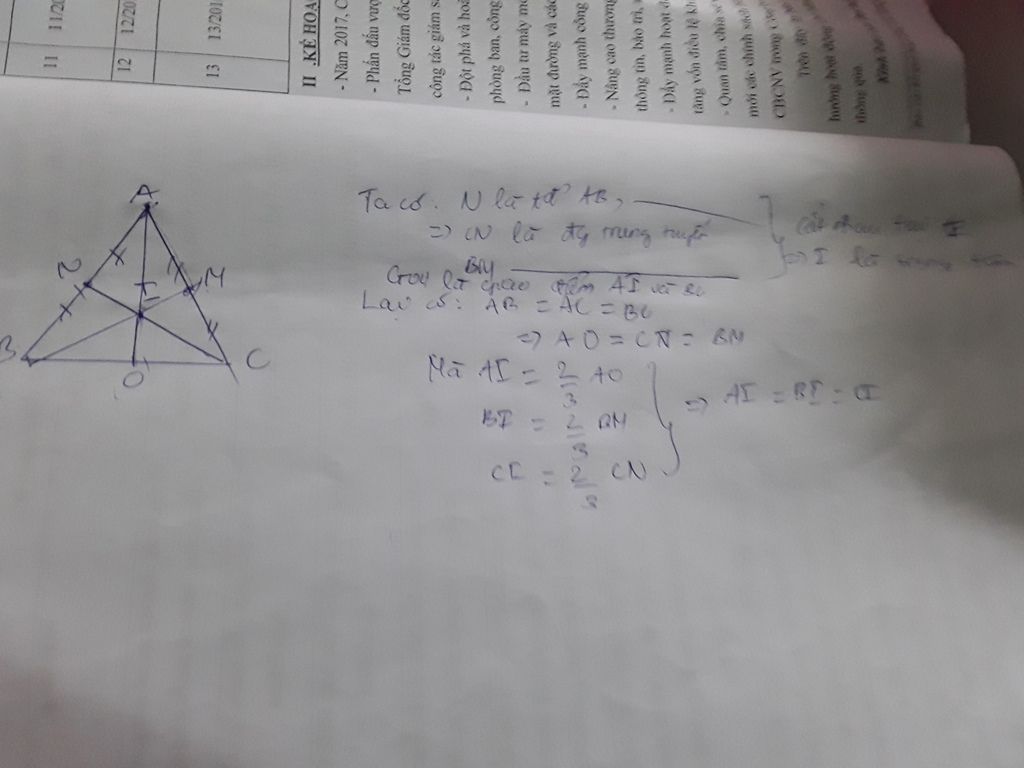 11 11/20
12 12/20
13 13/201
II KẾ HOẠ
- Năm 2017, C
- Phấn đấu vượ
Tổng Giám đốc
công tác giám s
- Đột phá và hoà
phòng ban, công
- Đầu tư máy mó
mặt đường và các
- Đẩy mạnh công
- Nâng cao thương
thông tin, bảo trì,
- Đẩy mạnh hoạt đ
tăng vốn điều lệ
- Quan tâm, chia sẻ
mới các chính sách
CBCNV trong công
Trên đây
hướng hoạt động
thông qua.
A
N
M
I
B
O
C
Ta có: N là tđ AB,
=> CN là đg trung tuyến
BM
cắt nhau tại I
=> I là trọng tâm
Gọi là giao điểm AI và BC
Lại có: AB = AC = BC
=> AO = CN = BM
Mà AI = 2/3 AO
BI = 2/3 BM
CI = 2/3 CN
=> AI = BI = CI